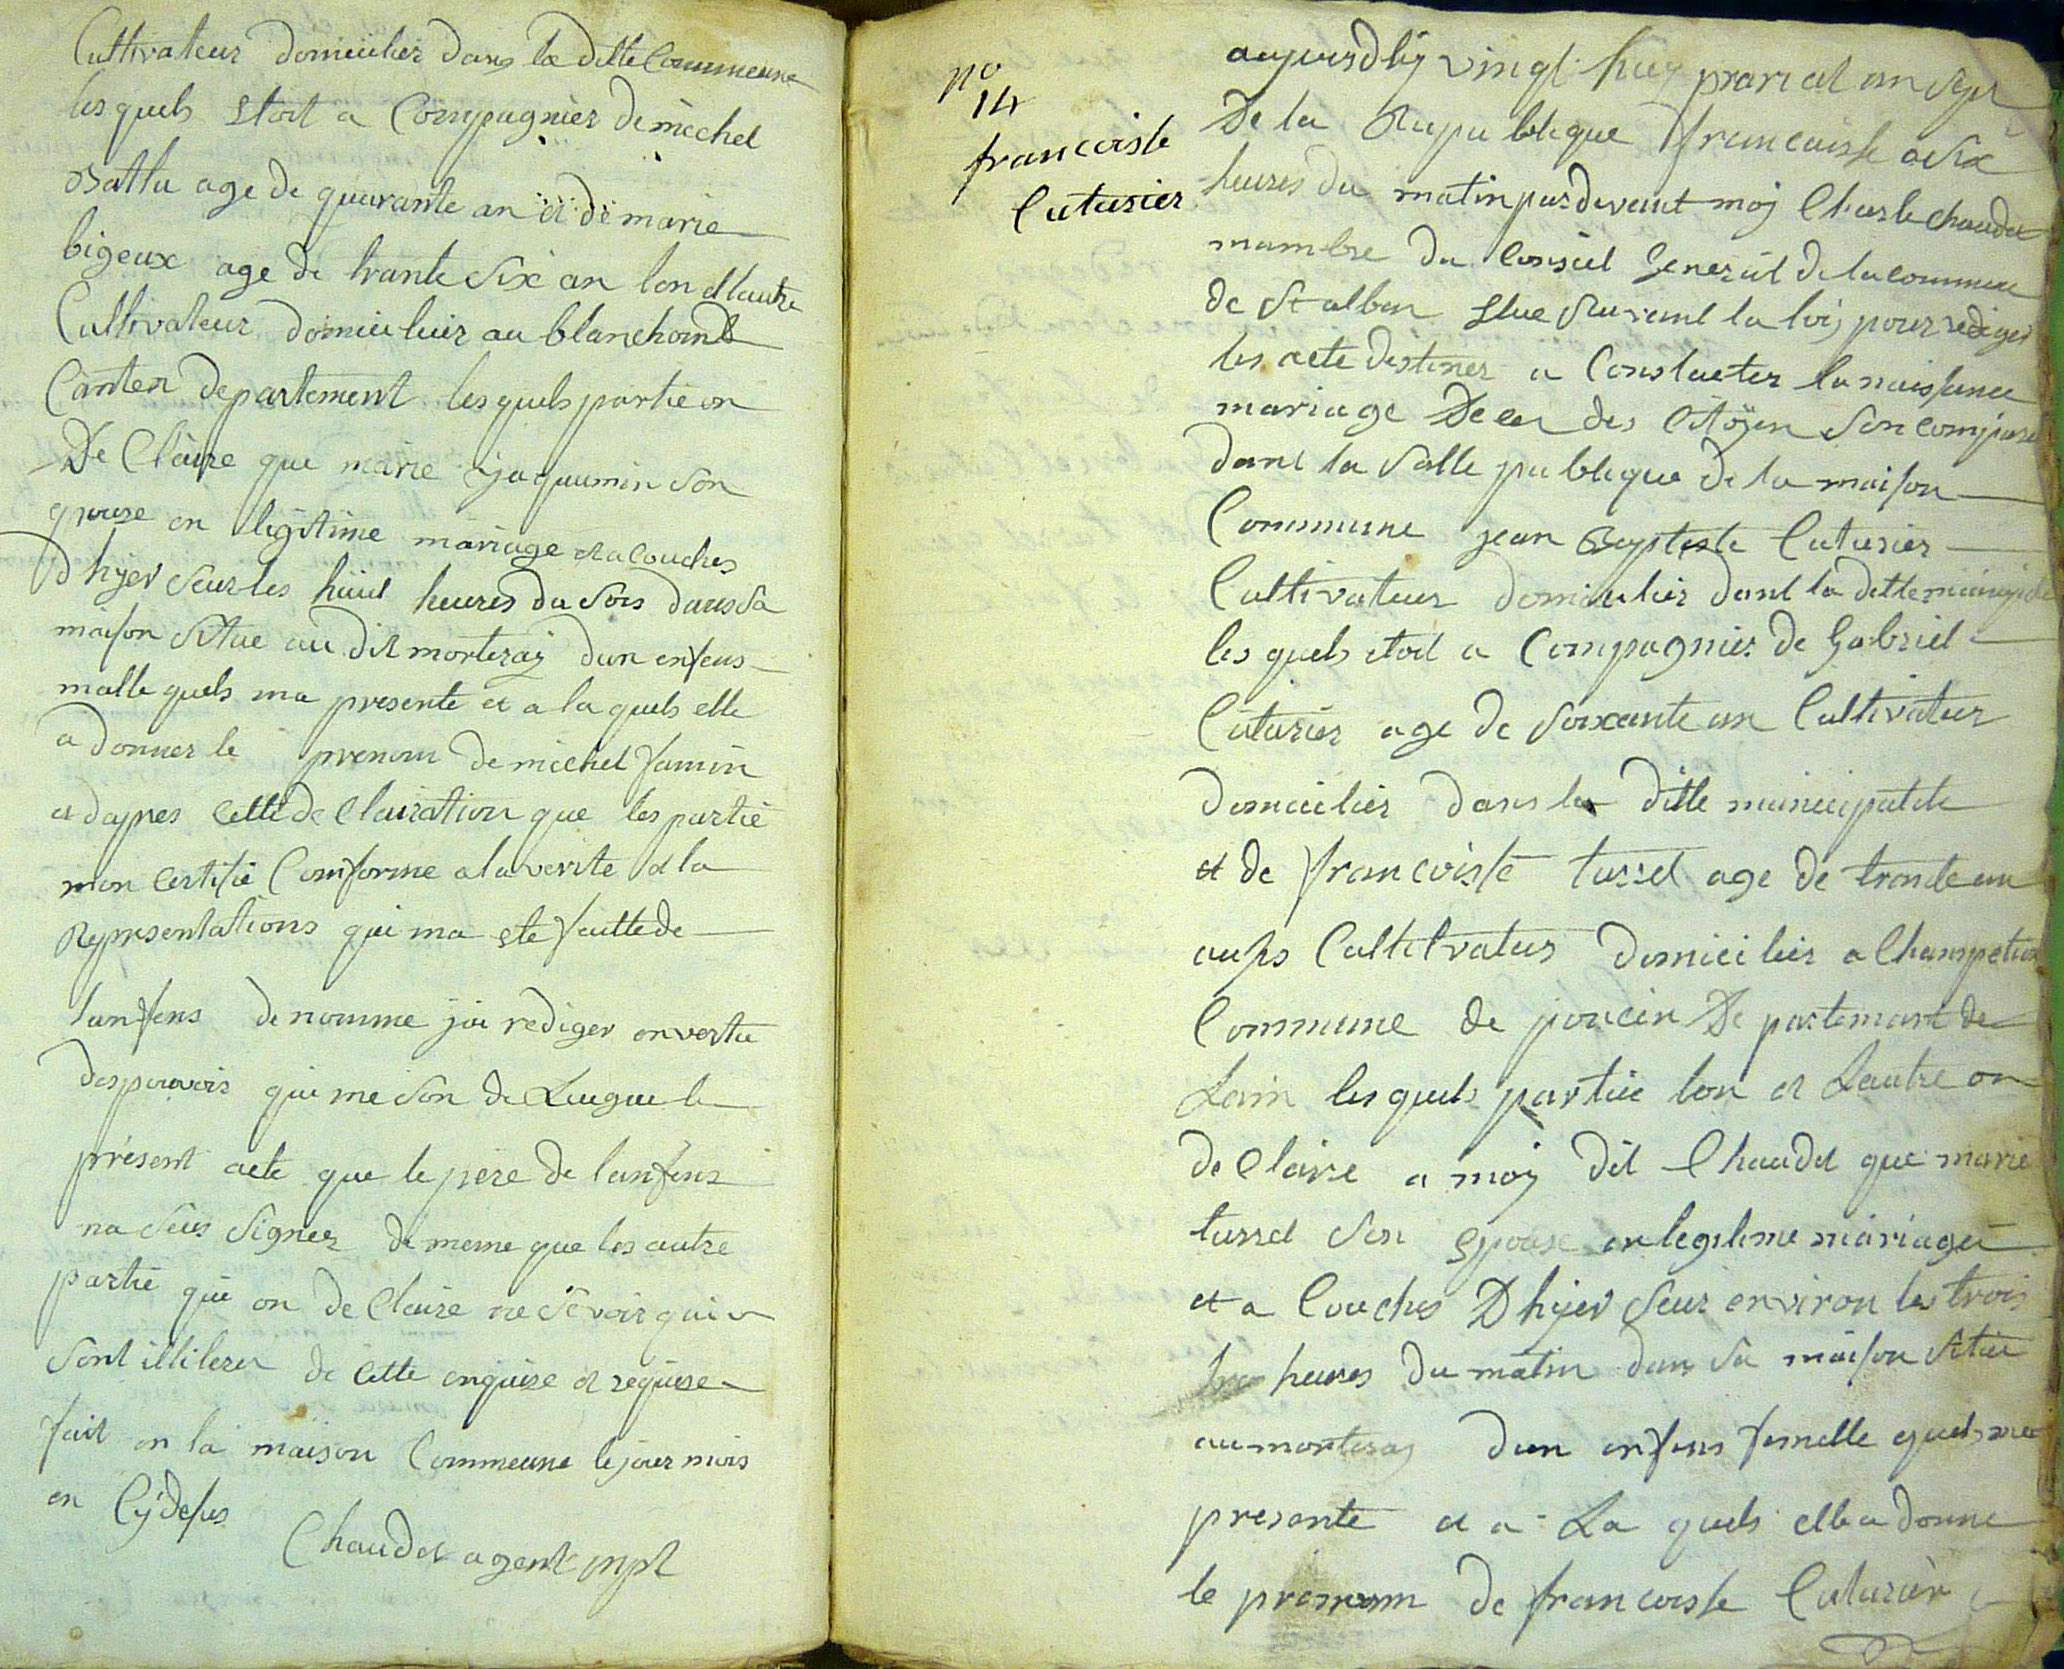 Cultivateur domicilier dans la ditte Commeune
les quels Etoit a Compagnier de michel
Battu age de quarante an et de marie
bigeux age de trante Six an lon et lautre
Cultivateur domicilier au blanchomt
Canten departement les quels partie on
De Claire que marie jaquemin Son
Epouse en legitime mariage et a Couches
D hyer Seur les huit heures du Soir dans Sa
maison Situe au dit morteray dun enfens
malle quels ma presente et a la quels elle
a donner le prenom de michel famin
et dapres Cette de Clairation que les partie
mon Certifie Conforme a la verite et la
Representations qui ma ete faitte de
lanfens denomme jai rediger en vertu
des pouvoir qui me Son de Leugue le
présent acte que le père de lanfens
na Seus Signer de meme que les autre
partie qui on de Claire ne Sevoir qui
Sont illiterer de Cette enquise et requise
fait en la maison Commeune le jour mois
en Cydesus
Chaudet agent mpl
no
14
francoise
Cuturier
aujourdhy vingt huy prarial an Sept
De la Repu blique francaise a Six
heures du matin par devant moy Charle chaudet
mambre du Conseil General de la commune
de St alban Elue Suivent la loy pour rediger
les acte destiner a Constacter la naissance
mariage Decer des Citöyen Son Comparu
dant la Salle publique de la maison
Commune jean Bayptiste Cuturier
Cultivateur domicilier dant la ditte municipale
les quels etoit a Compagnier de Gabriel
Cuturier age de Soixante an Cultivateur
domicilier dans la ditte municipalite
et de francoise tussel age de trante an
ausis Cultitvateur domicilier a Champetux
Commune de poncin De partemant de
Lain les quels partie lon et Lautre on
de Claire a moy dit Chaudet que marie
tussel Son Epouse en legitime mariage
et a Couches D hyer Seur environ les trois
heures du matin dans Sa maison Situe
au morteray dun enfens femelle quels ma
presente et a La quels elle a donne
le prenom de francoise Cuturièr